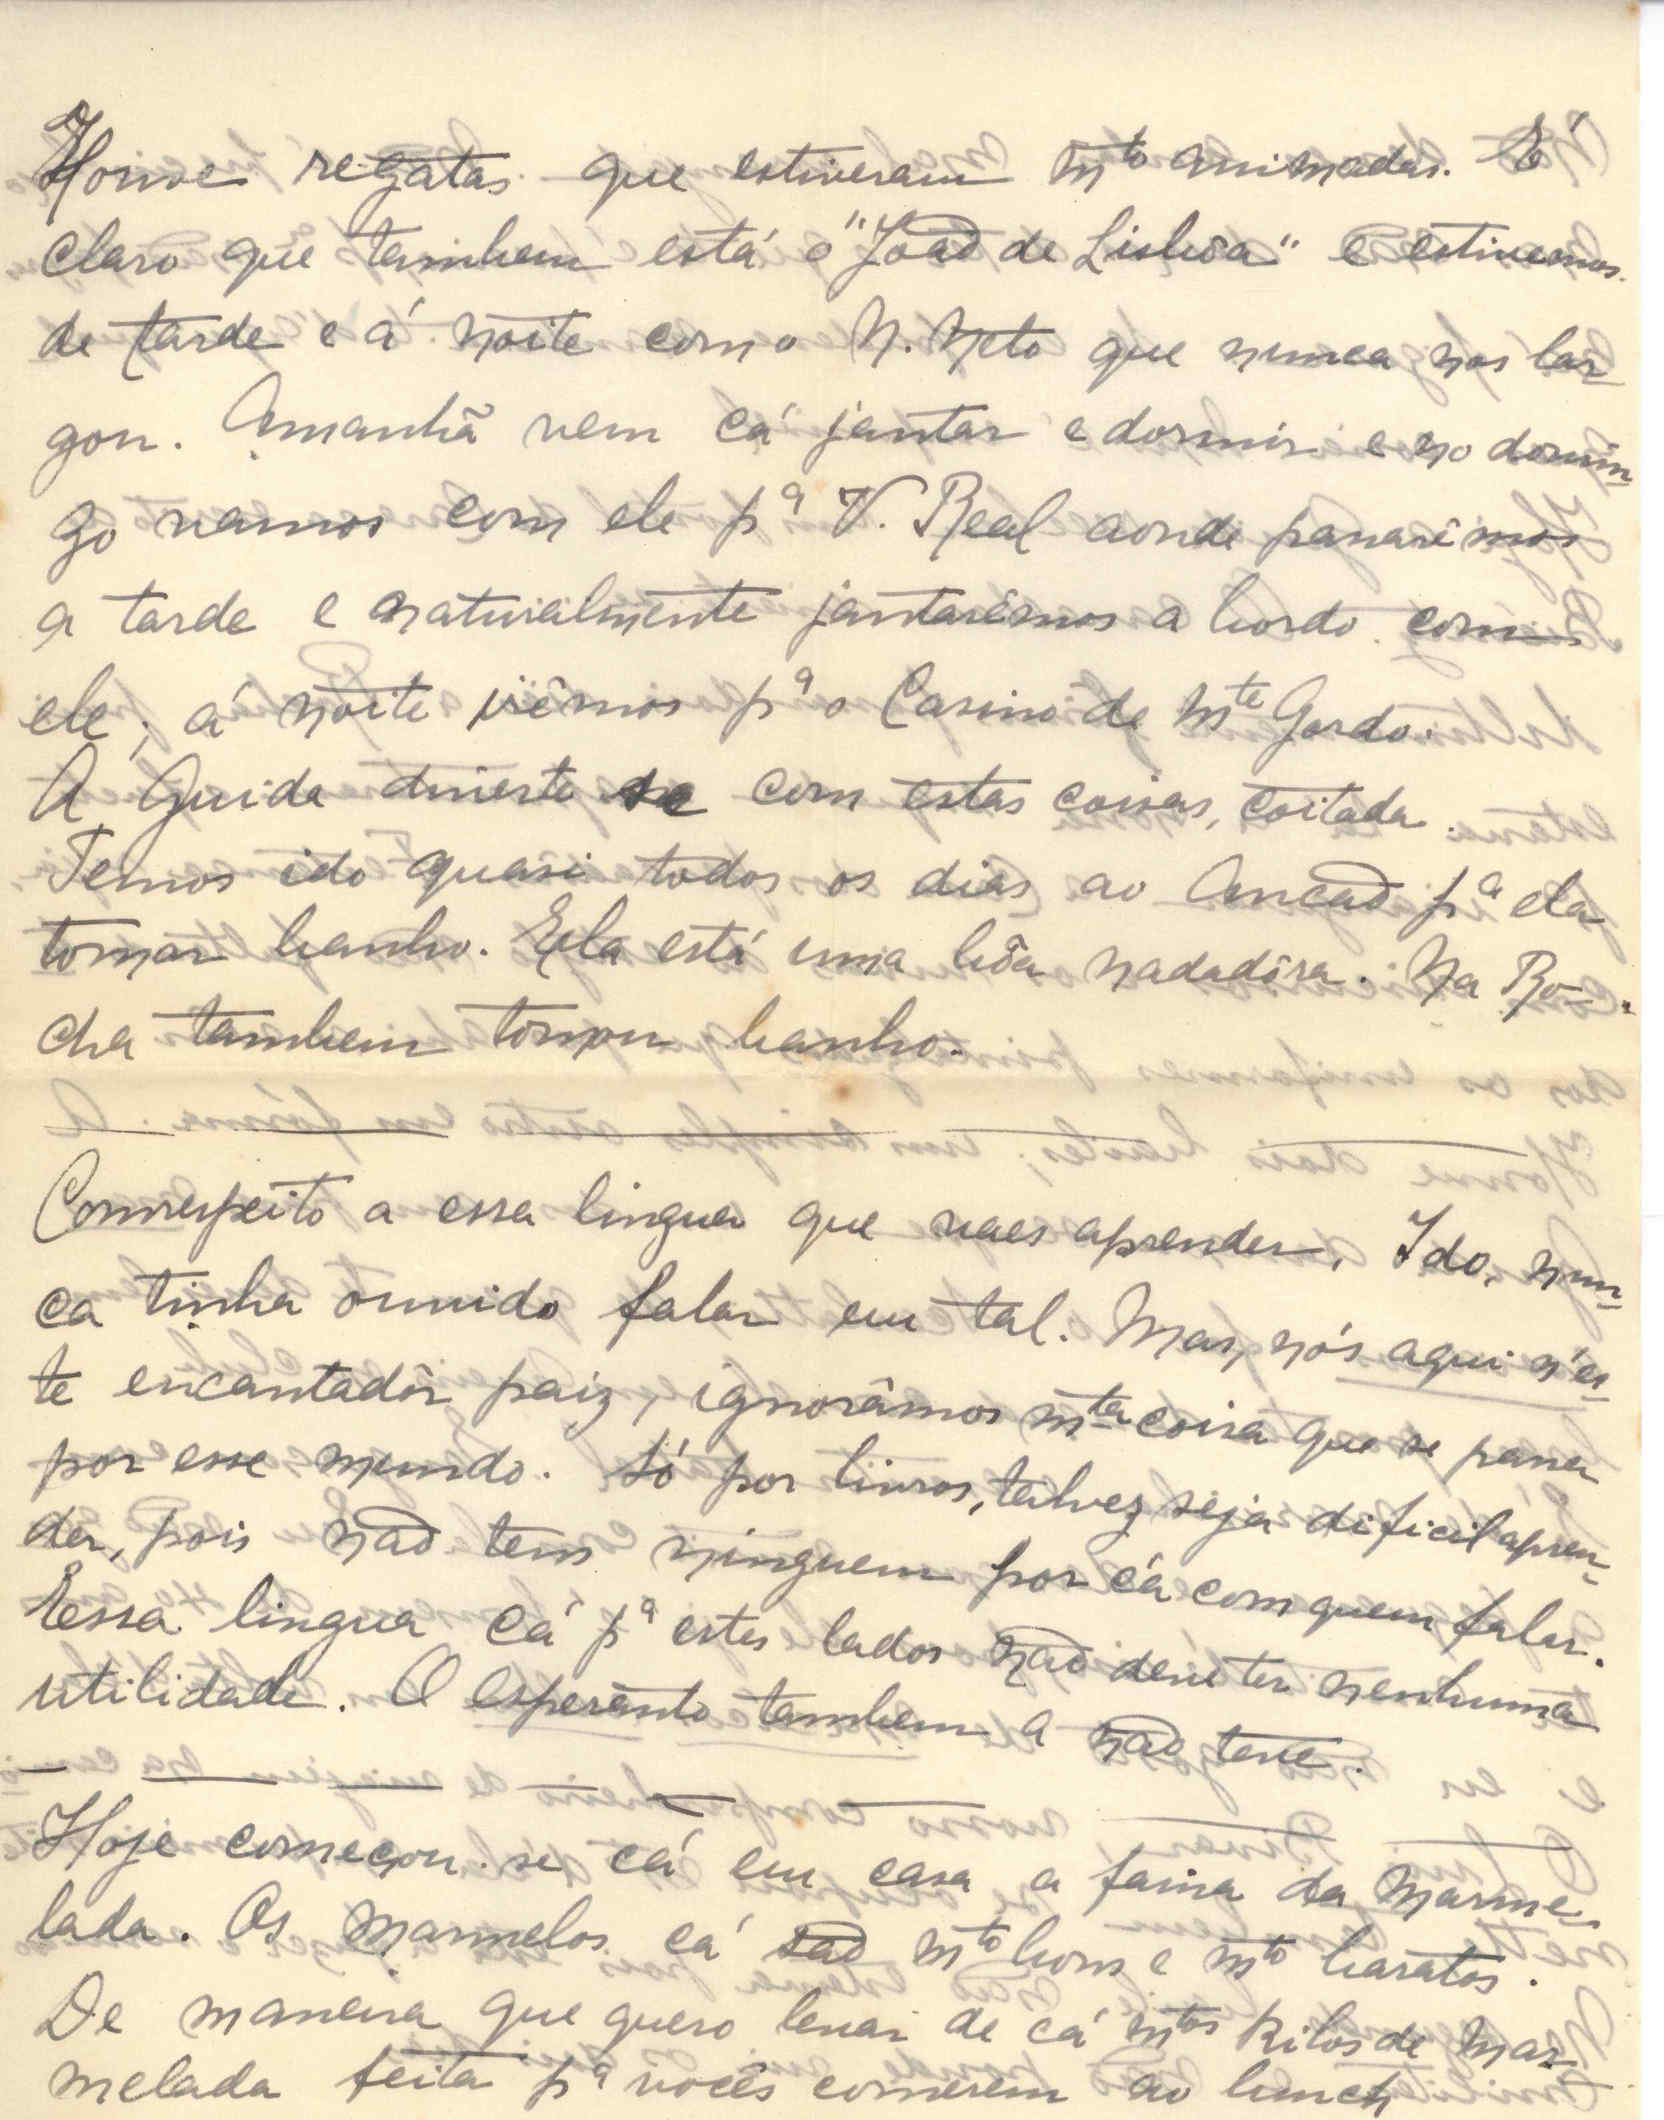 Houve regatas que estiveram mto animadas. É
claro que tambem está o "João de Lisbôa" e estivemos
de tarde e á noite com o N. Neto que nunca nos lar-
gou. Amanhã vem cá jantar e dormir e no domin-
go vamos com ele pª V. Real aonde passarêmos
a tarde e naturalmente jantarêmos a bordo com
ele; á noite irêmos pª o Casino de Mte Gordo.
A Guida diverte se com estas coisas, coitada.
Temos ido quasi todos os dias ao Ancão pª ela
tomar banho. Ela está uma bôa nadadôra. Na Ro-
cha tambem tomou banho.
Com respeito a essa lingua que vaes aprender, Ido, nun-
ca tinha ouvido falar em tal. Mas, nós aqui n'es-
te encantadôr paiz, ignorâmos mta coisa que se passa
por esse mundo. Só por livros, talvez seja dificil apren-
der, pois não tens ninguem por cá com quem falar.
E essa lingua cá pª estes lados não deve ter nenhuma
utilidade. O esperanto tambem a não teve.
Hoje começou-se cá em casa a faina da marme-
lada. Os marmelos cá são mto bons e mto baratos.
De maneira que quero levar de cá mtos kilos de mar-
melada feita pª vocês comerem ao lunch